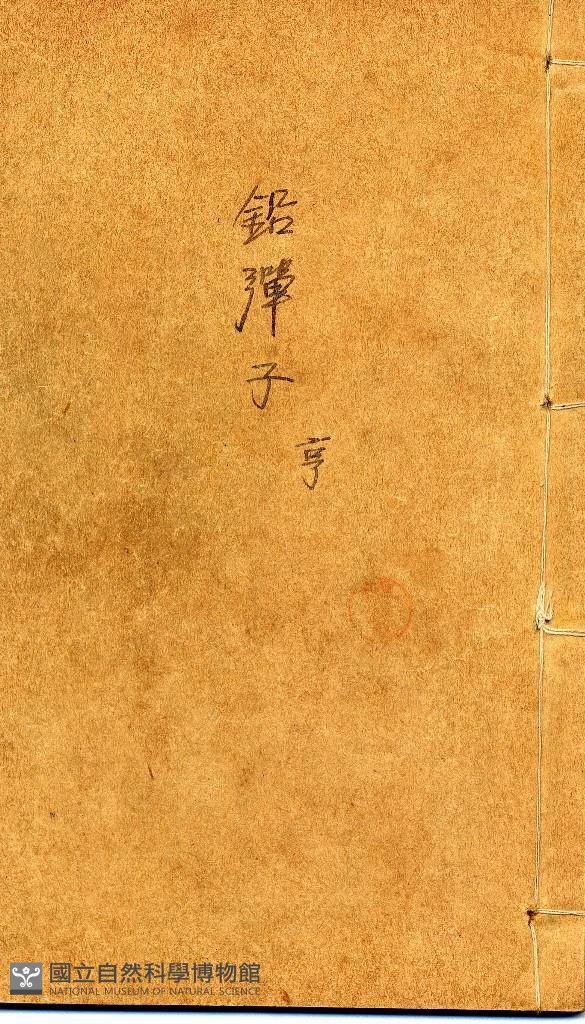 鉛彈子
亨
國立自然科學博物館
NATIONAL MUSEUM OF NATURAL SCIENCE